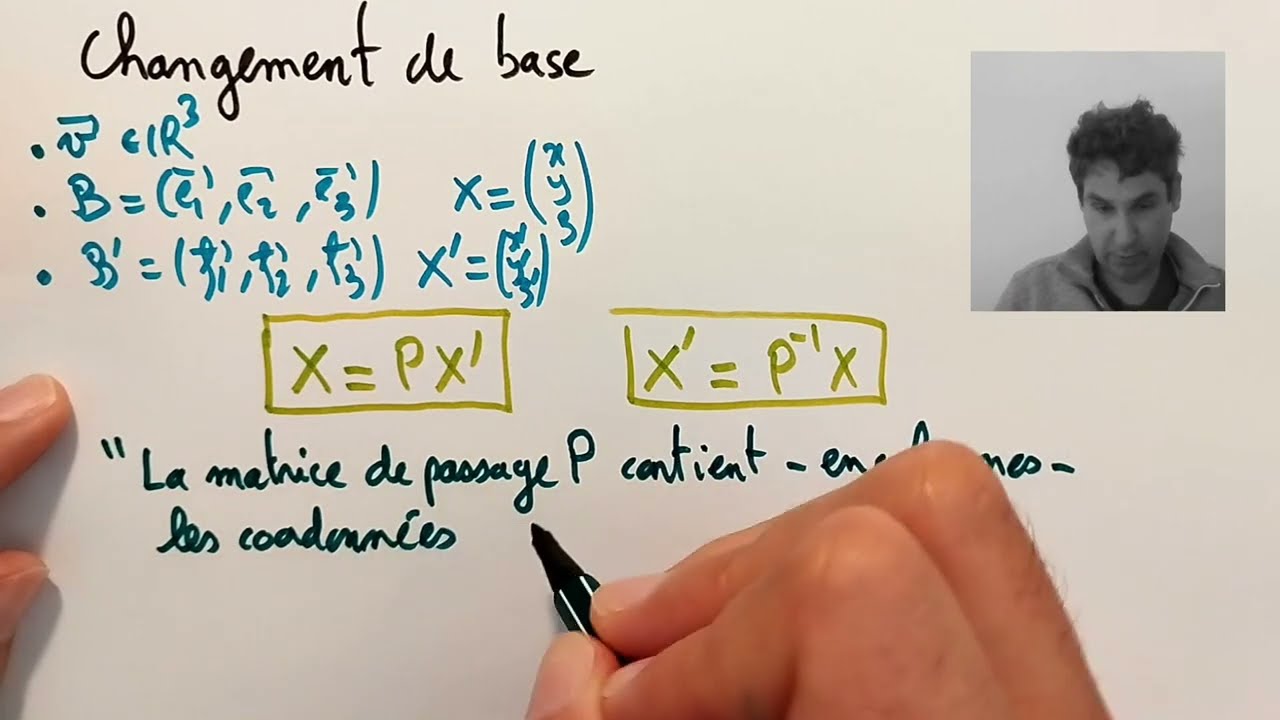 Changement de base
• v⃗ ∈ ℝ³
• B = (e⃗₁, e⃗₂, e⃗₃) X = (x y z)
• B' = (f⃗₁, f⃗₂, f⃗₃) X' = (x' y' z')
X = PX' X' = P⁻¹X
"La matrice de passage P contient -
les coordonnées